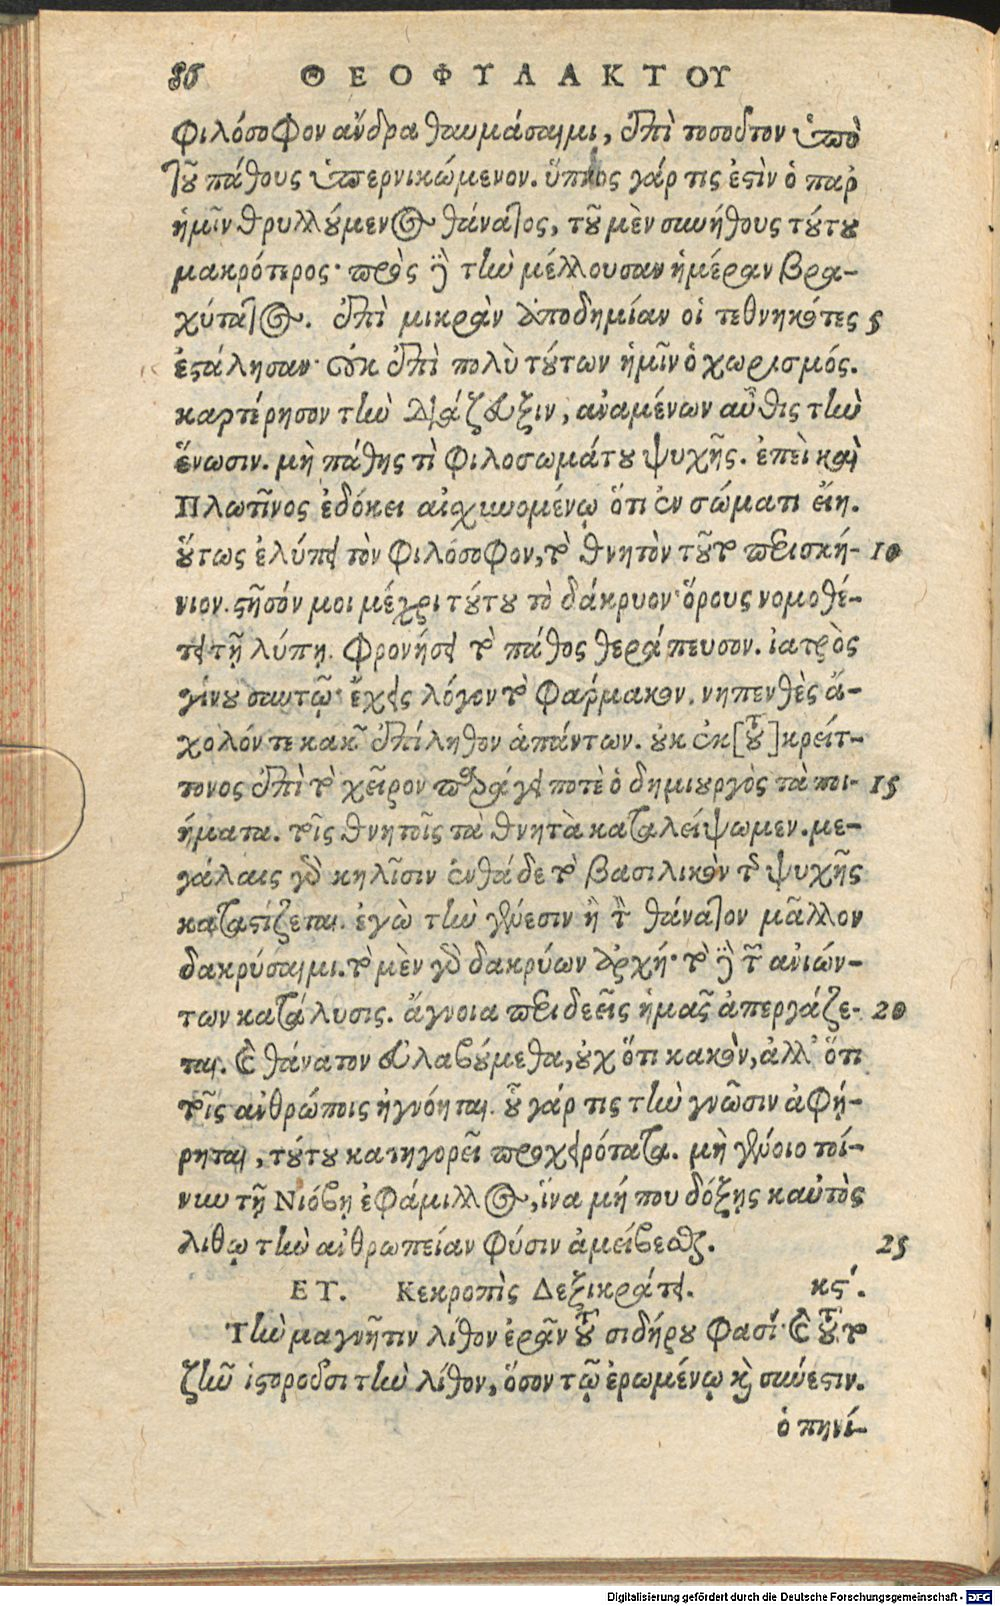 86 ΘΕΟΦΥΛΑΚΤΟΥ
φιλόσοφον ἄνδρα θαυμάσαιμι, ἐπὶ τοσοῦτον ὑπὸ
τοῦ πάθους ὑπερνικώμενον. ὕπνος γάρ τις ἐστὶν ὁ παρ᾽
ἡμῖν θρυλλούμενος θάνατος, τοῦ μὲν συνήθους τούτου
μακρότερος· πρὸς δὲ τὴν μέλλουσαν ἡμέραν βρα-
χύτατος. ἐπὶ μικρὰν ἀποδημίαν οἱ τεθνηκότες 5
ἐστάλησαν· οὐκ ἐπὶ πολὺ τούτων ἡμῖν ὁ χωρισμός.
καρτέρησον τὴν διάζευξιν, ἀναμένων αὖθις τὴν
ἕνωσιν. μὴ πάθης τὶ φιλοσωμάτου ψυχῆς. ἐπεὶ καὶ
Πλωτῖνος ἐδόκει αἰσχυνομένῳ ὅτι ἐν σώματι εἴη.
οὕτως ἐλύπει τὸν φιλόσοφον, τὸ θνητὸν τοῦτο περισκή- 10
νιον. στῆσόν μοι μέχρι τούτου τὸ δάκρυον· ὅρους νομοθέ-
τει τῇ λύπῃ. φρονήσει τὸ πάθος θεράπευσον. ἰατρὸς
γίνου σαυτῷ· ἔχεις λόγον τὸ φάρμακον. νηπενθὲς ἄ-
χολόν τε κακῶν ἐπίληθον ἁπάντων. οὐκ ἐκ [τοῦ] κρείτ-
τονος ἐπὶ τὸ χεῖρον παράγει ποτὲ ὁ δημιουργὸς τὰ ποι- 15
ήματα. τοῖς θνητοῖς τὰ θνητὰ καταλείψωμεν. με-
γάλαις γὰρ κηλῖσιν ἐνθάδε τὸ βασιλικὸν τῆς ψυχῆς
καταστίζεται. ἐγὼ τὴν γένεσιν ἢ τὸν θάνατον μᾶλλον
δακρύσαιμι. τὸ μὲν γὰρ δακρύων ἀρχή· τὸ δὲ τῶν ἀνιών-
των κατάλυσις. ἄγνοια περιδεεῖς ἡμᾶς ἀπεργάζε- 20
ται. καὶ θάνατον εὐλαβούμεθα, οὐχ ὅτι κακὸν, ἀλλ᾽ ὅτι
τοῖς ἀνθρώποις ἠγνόηται. οὗ γάρ τις τὴν γνῶσιν ἀφῄ-
ρηται, τούτου κατηγορεῖ προχειρότατα. μὴ γένοιο τοί-
νυν τῇ Νιόβῃ ἐφάμιλλος, ἵνα μή που δόξῃς καὐτὸς
λίθῳ τὴν ἀνθρωπείαν φύσιν ἀμείβεσθαι. 25
ΕΤ. Κεκροπὶς Δεξικράτει. κϛʹ.
Τὴν μαγνῆτιν λίθον ἐρᾶν τοῦ σιδήρου φασί· καὶ τοῦτο
ζῆν ἱστοροῦσι τὴν λίθον, ὅσον τῷ ἐρωμένῳ καὶ σύνεστιν.
ὁ πηνί-
Digitalisierung gefördert durch die Deutsche Forschungsgemeinschaft - DFG